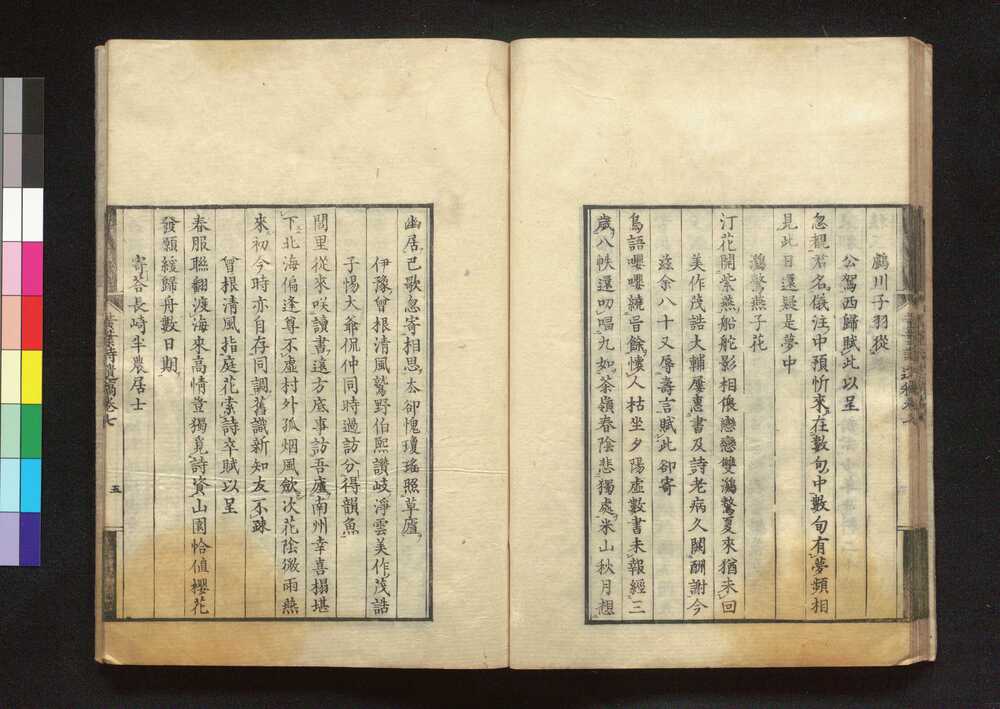 鸕川子羽從
公駕西歸賦此以呈
忽覩君名儀注中預忻來在數旬中數旬有夢頻相
見此日還疑是夢中
鸂鶒燕子花
汀花開紫燕船舵影相偎戀戀雙鸂鶒夏來猶未回
美作茂誥大輔屢惠書及詩老病久闕酬謝今
玆余八十又辱壽言賦此卻寄
鳥語嚶嚶繞晋餘懷人枯坐夕陽虛數書未報經三
歲八帙還叨唱九如茶嶺春陰悲獨處米山秋月想
幽居已歌忽寄相思太卻愧瓊瑤照草廬
伊豫曾根清風鷲野伯熙讚岐淨雲美作茂誥
子惕大爺侃仲同時過訪分得韻魚
閭里從來咲讀書遠方底事訪吾廬南州幸喜榻堪
下北海偏逢尊不虛村外孤烟風歛次花陰微雨燕
來初今時亦自存同調舊識新知友不疎
曾根清風指庭花索詩卒賦以呈
春服聯翻渡海來高情豈獨覓詩資山園恰値櫻花
發願緩歸舟數日期
寄荅長崎半農居士
黃葉詩遺稿卷七
五